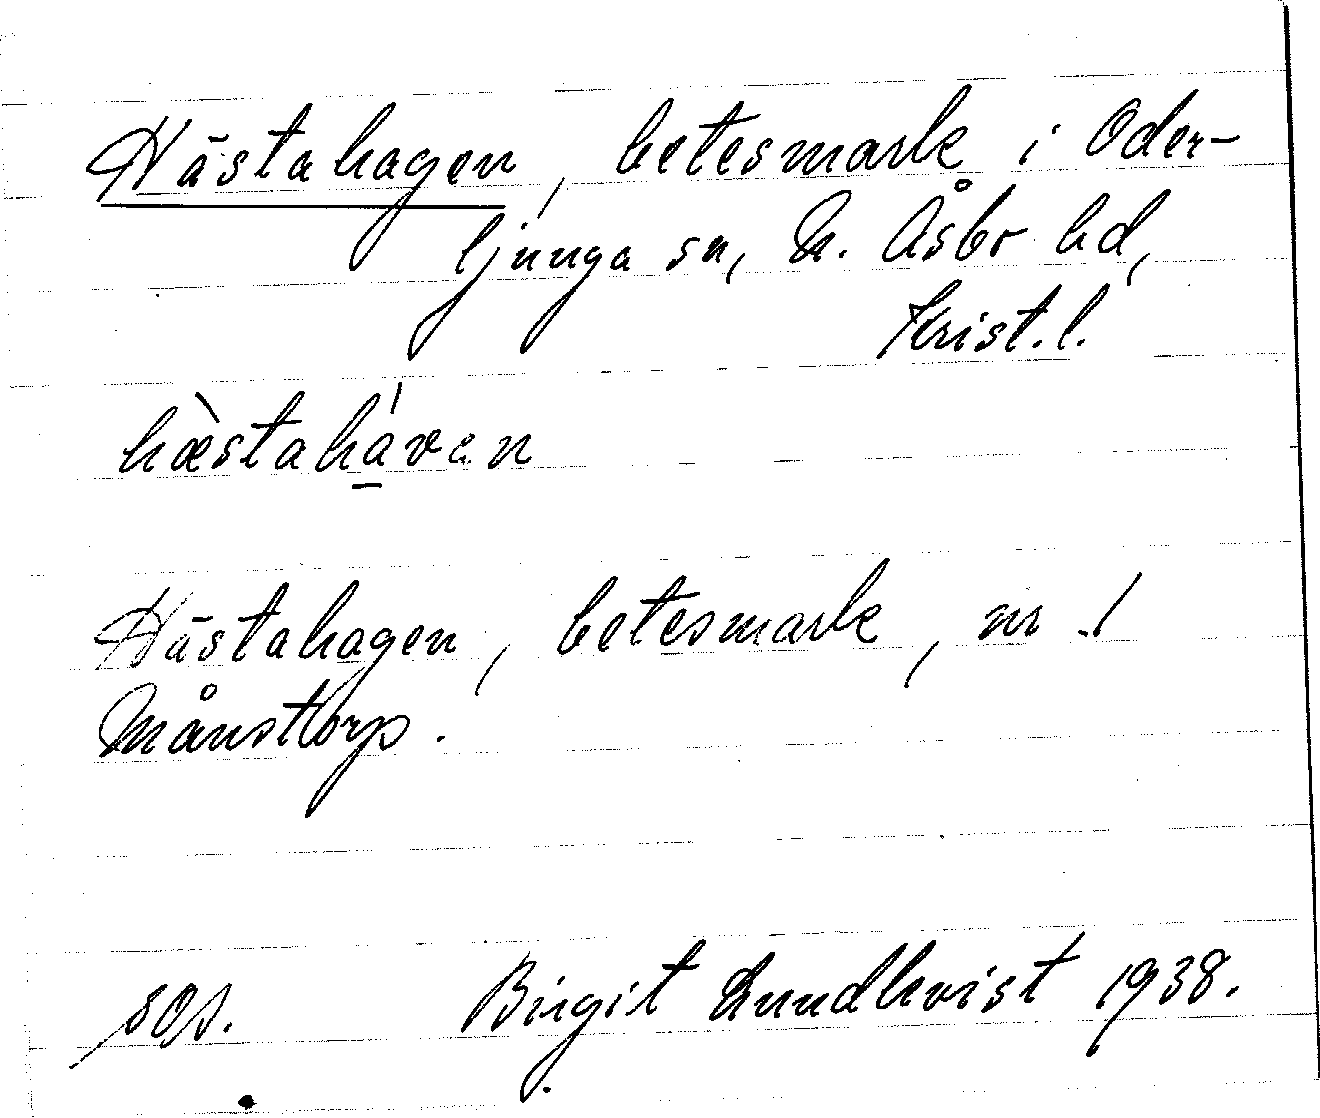 Hästahagen, betesmark i Oder-
ljunga sn, N. Åsbo hd,
Krist. l.
hæ̀stahá̱ven
Hästahagen, betesmark, nr 1
Månstorp.
sos. Birgit Lundkvist 1938.